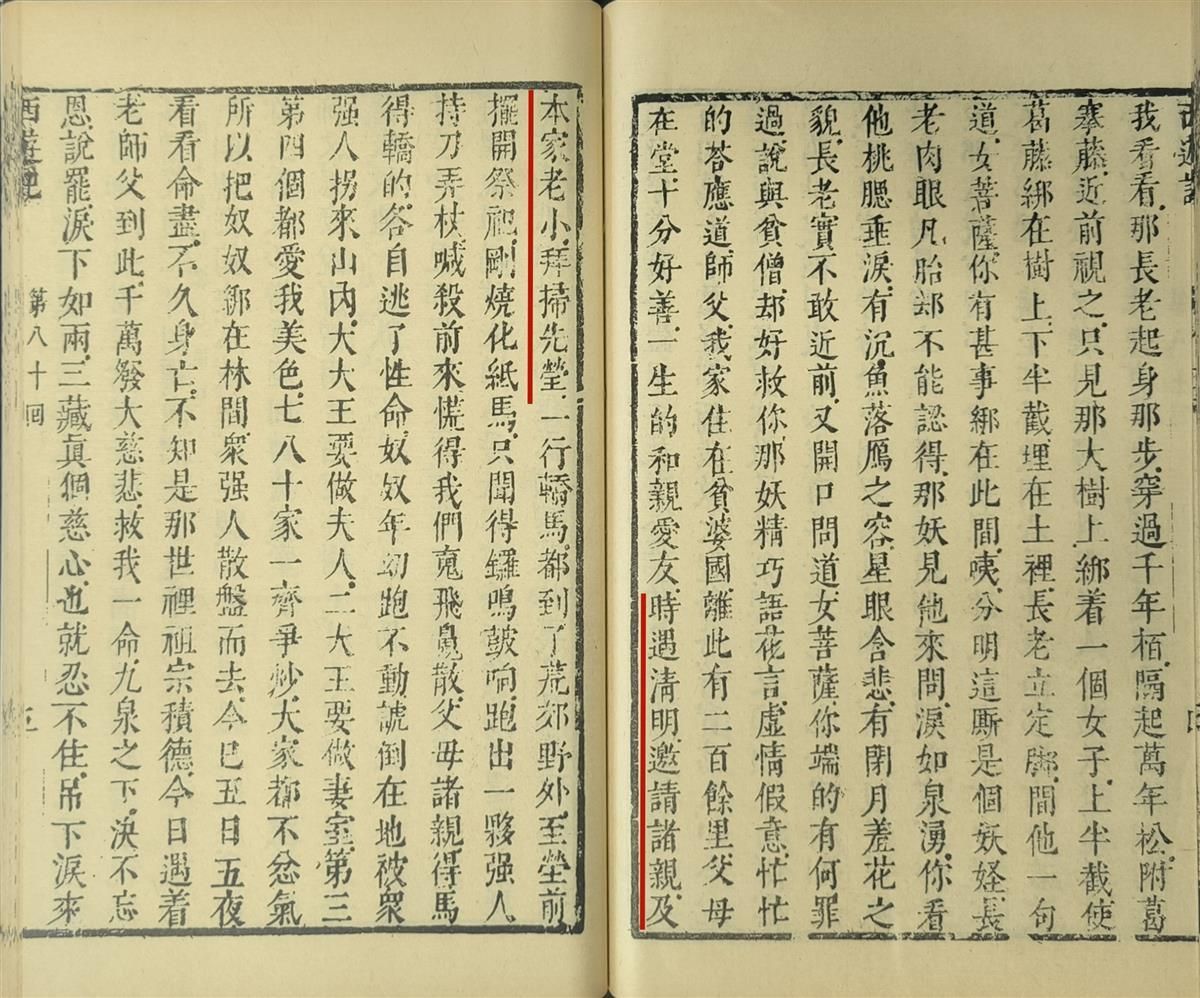 我看看、那長老起身那步、穿過千年栢、隔起萬年松、附葛
攀藤、近前視之、只見那大樹上、綁着一個女子、上半截使
葛藤綁在樹上、下半截埋在土裡、長老立定脚、問他一句
道、女菩薩、你有甚事綁在此間、咦、分明這厮是個妖怪、長
老肉眼凡胎、却不能認得、那妖見他來問、淚如泉湧、你看
他桃腮垂淚、有沉魚落鴈之容、星眼含悲、有閉月羞花之
貌、長老實不敢近前、又開口問道、女菩薩、你端的有何罪
過、說與貧僧、却好救你、那妖精巧語花言、虛情假意、忙忙
的荅應道、師父、我家住在貧婆國、離此有二百餘里、父母
在堂、十分好善、一生的和親愛友、時遇清明、邀請諸親、及
本家老小、拜掃先塋、一行轎馬、都到了荒郊野外、至塋前
擺開祭祀、剛燒化紙馬、只聞得鑼鳴皷响、跑出一夥强人
持刀弄杖、喊殺前來、慌得我們䰟飛魄散、父母諸親、得馬
得轎的、各自逃了性命、奴奴年幼、跑不動、諕倒在地、被衆
强人拐來山內、大大王要做夫人、二大王要做妻室、第三
第四個都愛我美色、七八十家一齊爭炒、大家都不忿氣
所以把奴奴綁在林間、衆强人散盤而去、今已五日五夜
看看命盡、不久身亡、不知是那世裡祖宗積德、今日遇着
老師父到此、千萬發大慈悲、救我一命、九泉之下、决不忘
恩、說罷、淚下如雨、三藏真個慈心、也就忍不住、吊下淚來
西遊記 第八十回